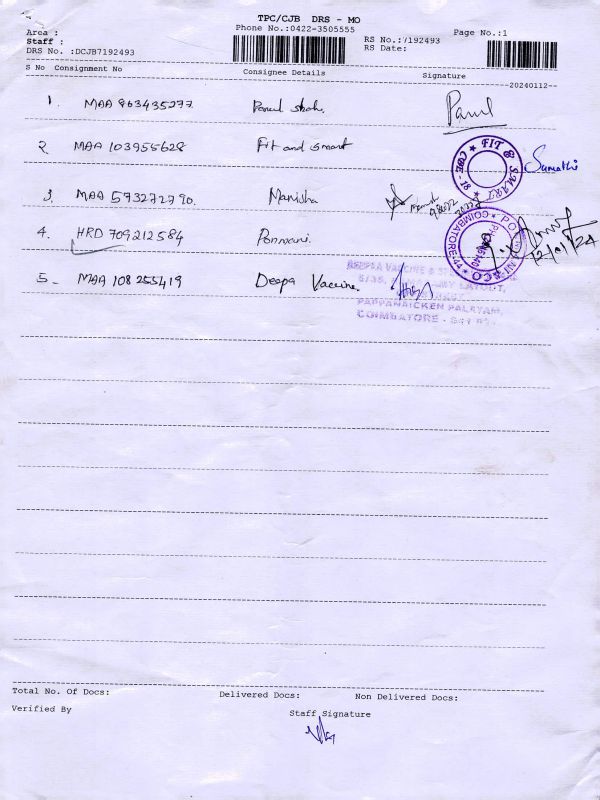 TPC/CJB DRS - MO
Area :
Phone No.:0422-3505555
Page No.:1
Staff :
RS No.:7192493
DRS No. :DCJB7192493
RS Date:
S No Consignment No Consignee Details Signature
20240112
1. MAA 863435277 Parul shah. Parul
2 MAA 103955628 Fit and smart FIT & SMART CBE - 18 Sumathi
3. MAA 573272790. Manisha
4. HRD 709212584 Ponmani. COIMBATORE-44 12/01/24
5- MAA 108255419 Deepa Vaccine.
DEEPAA VACCINE &
LAYOUT,
PAPPANAICKEN PALAYAM,
COIMBATORE - 641
Total No. Of Docs: Delivered Docs: Non Delivered Docs:
Verified By Staff Signature